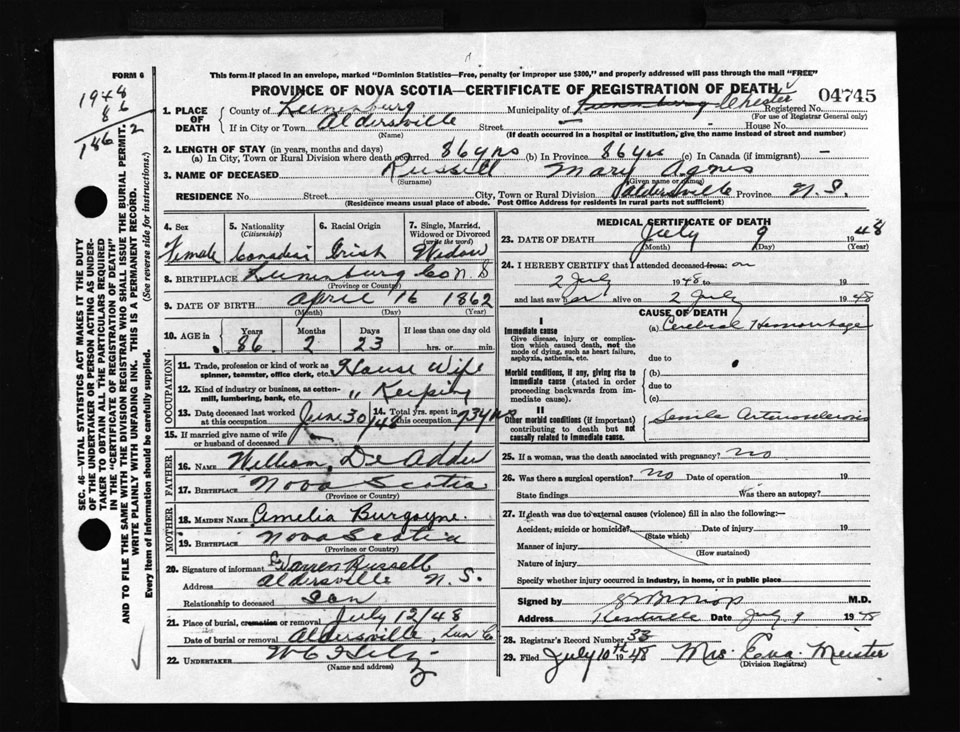 FORM 6
This form if placed in an envelope, marked "Dominion Statistics—Free, penalty (for improper use $300," and properly addressed will pass through the mail "FREE"
PROVINCE OF NOVA SCOTIA—CERTIFICATE OF REGISTRATION OF DEATH
04745
1948
86
1862
1. PLACE OF DEATH
County of Lunenburg Municipality of Lunenburg Chester Registered No.
(For use of Registrar General only)
If in City or Town Aldersville Street House No.
(Name) (If death occurred in a hospital or institution, give the name instead of street and number)
2. LENGTH OF STAY (in years, months and days)
(a) In City, Town or Rural Division where death occurred 86 yrs (b) In Province 86 yrs (c) In Canada (if immigrant) —
3. NAME OF DECEASED Russell Mary Agnes
(Surname) (Given name or names)
RESIDENCE No. Street City, Town or Rural Division Aldersville Province N.S.
(Residence means usual place of abode. Post Office Address for residents in rural parts not sufficient)
4. Sex
Female
5. Nationality
(Citizenship)
Canadian
6. Racial Origin
Irish
7. Single, Married, Widowed or Divorced
(write the word)
Widow
8. BIRTHPLACE Lunenburg Co N S
(Province or Country)
9. DATE OF BIRTH April 16 1862
(Month) (Day) (Year)
10. AGE in Years Months Days If less than one day old
86 2 23 hrs. or min.
OCCUPATION
11. Trade, profession or kind of work as spinner, teamster, office clerk, etc. House Wife
12. Kind of industry or business, as cotton-mill, lumbering, bank, etc. " Keeping
13. Date deceased last worked at this occupation June 30/48
14. Total yrs. spent in this occupation 73 yrs
15. If married give name of wife or husband of deceased
FATHER
16. NAME William De Adder
17. BIRTHPLACE Nova Scotia
(Province or Country)
MOTHER
18. MAIDEN NAME Amelia Burgoyne
19. BIRTHPLACE Nova Scotia
(Province or Country)
20. Signature of informant Warren Russell
Address Aldersville N.S.
Relationship to deceased Son
21. Place of burial, cremation or removal July 12/48
Date of burial or removal Aldersville, Lun C
22. UNDERTAKER
(Name and address)
MEDICAL CERTIFICATE OF DEATH
23. DATE OF DEATH July 9 1948
(Month) (Day) (Year)
24. I HEREBY CERTIFY that I attended deceased from: on
2 July 1948 to 19
and last saw her alive on 2 July 1948
CAUSE OF DEATH
I
Immediate cause
Give disease, injury or complication which caused death, not the mode of dying, such as heart failure, asphyxia, asthenia, etc.
(a) Cerebral Hemorrhage
due to
Morbid conditions, if any, giving rise to immediate cause (stated in order proceeding backwards from immediate cause).
(b)
due to
(c)
II
Other morbid conditions (if important) contributing to death but not causally related to immediate cause.
Senile Arteriosclerosis
25. If a woman, was the death associated with pregnancy? no
26. Was there a surgical operation? no Date of operation 19
State findings Was there an autopsy?
27. If death was due to external causes (violence) fill in also the following:—
Accident, suicide or homicide? Date of injury 19
(State which)
Manner of injury
(How sustained)
Nature of injury
Specify whether injury occurred in industry, in home, or in public place
Signed by M.D.
Address Kentville Date July 9 1948
28. Registrar's Record Number 33
29. Filed July 10th 1948 Mrs. Eva Meister
(Division Registrar)
SEC. 46—VITAL STATISTICS ACT MAKES IT THE DUTY
OF THE UNDERTAKER OR PERSON ACTING AS UNDERTAKER
TO OBTAIN ALL THE PARTICULARS REQUIRED
IN THE "CERTIFICATE OF REGISTRATION OF DEATH"
AND TO FILE THE SAME WITH THE DIVISION REGISTRAR WHO SHALL ISSUE THE BURIAL PERMIT.
WRITE PLAINLY WITH UNFADING INK. THIS IS A PERMANENT RECORD.
Every item of information should be carefully supplied. (See reverse side for instructions.)